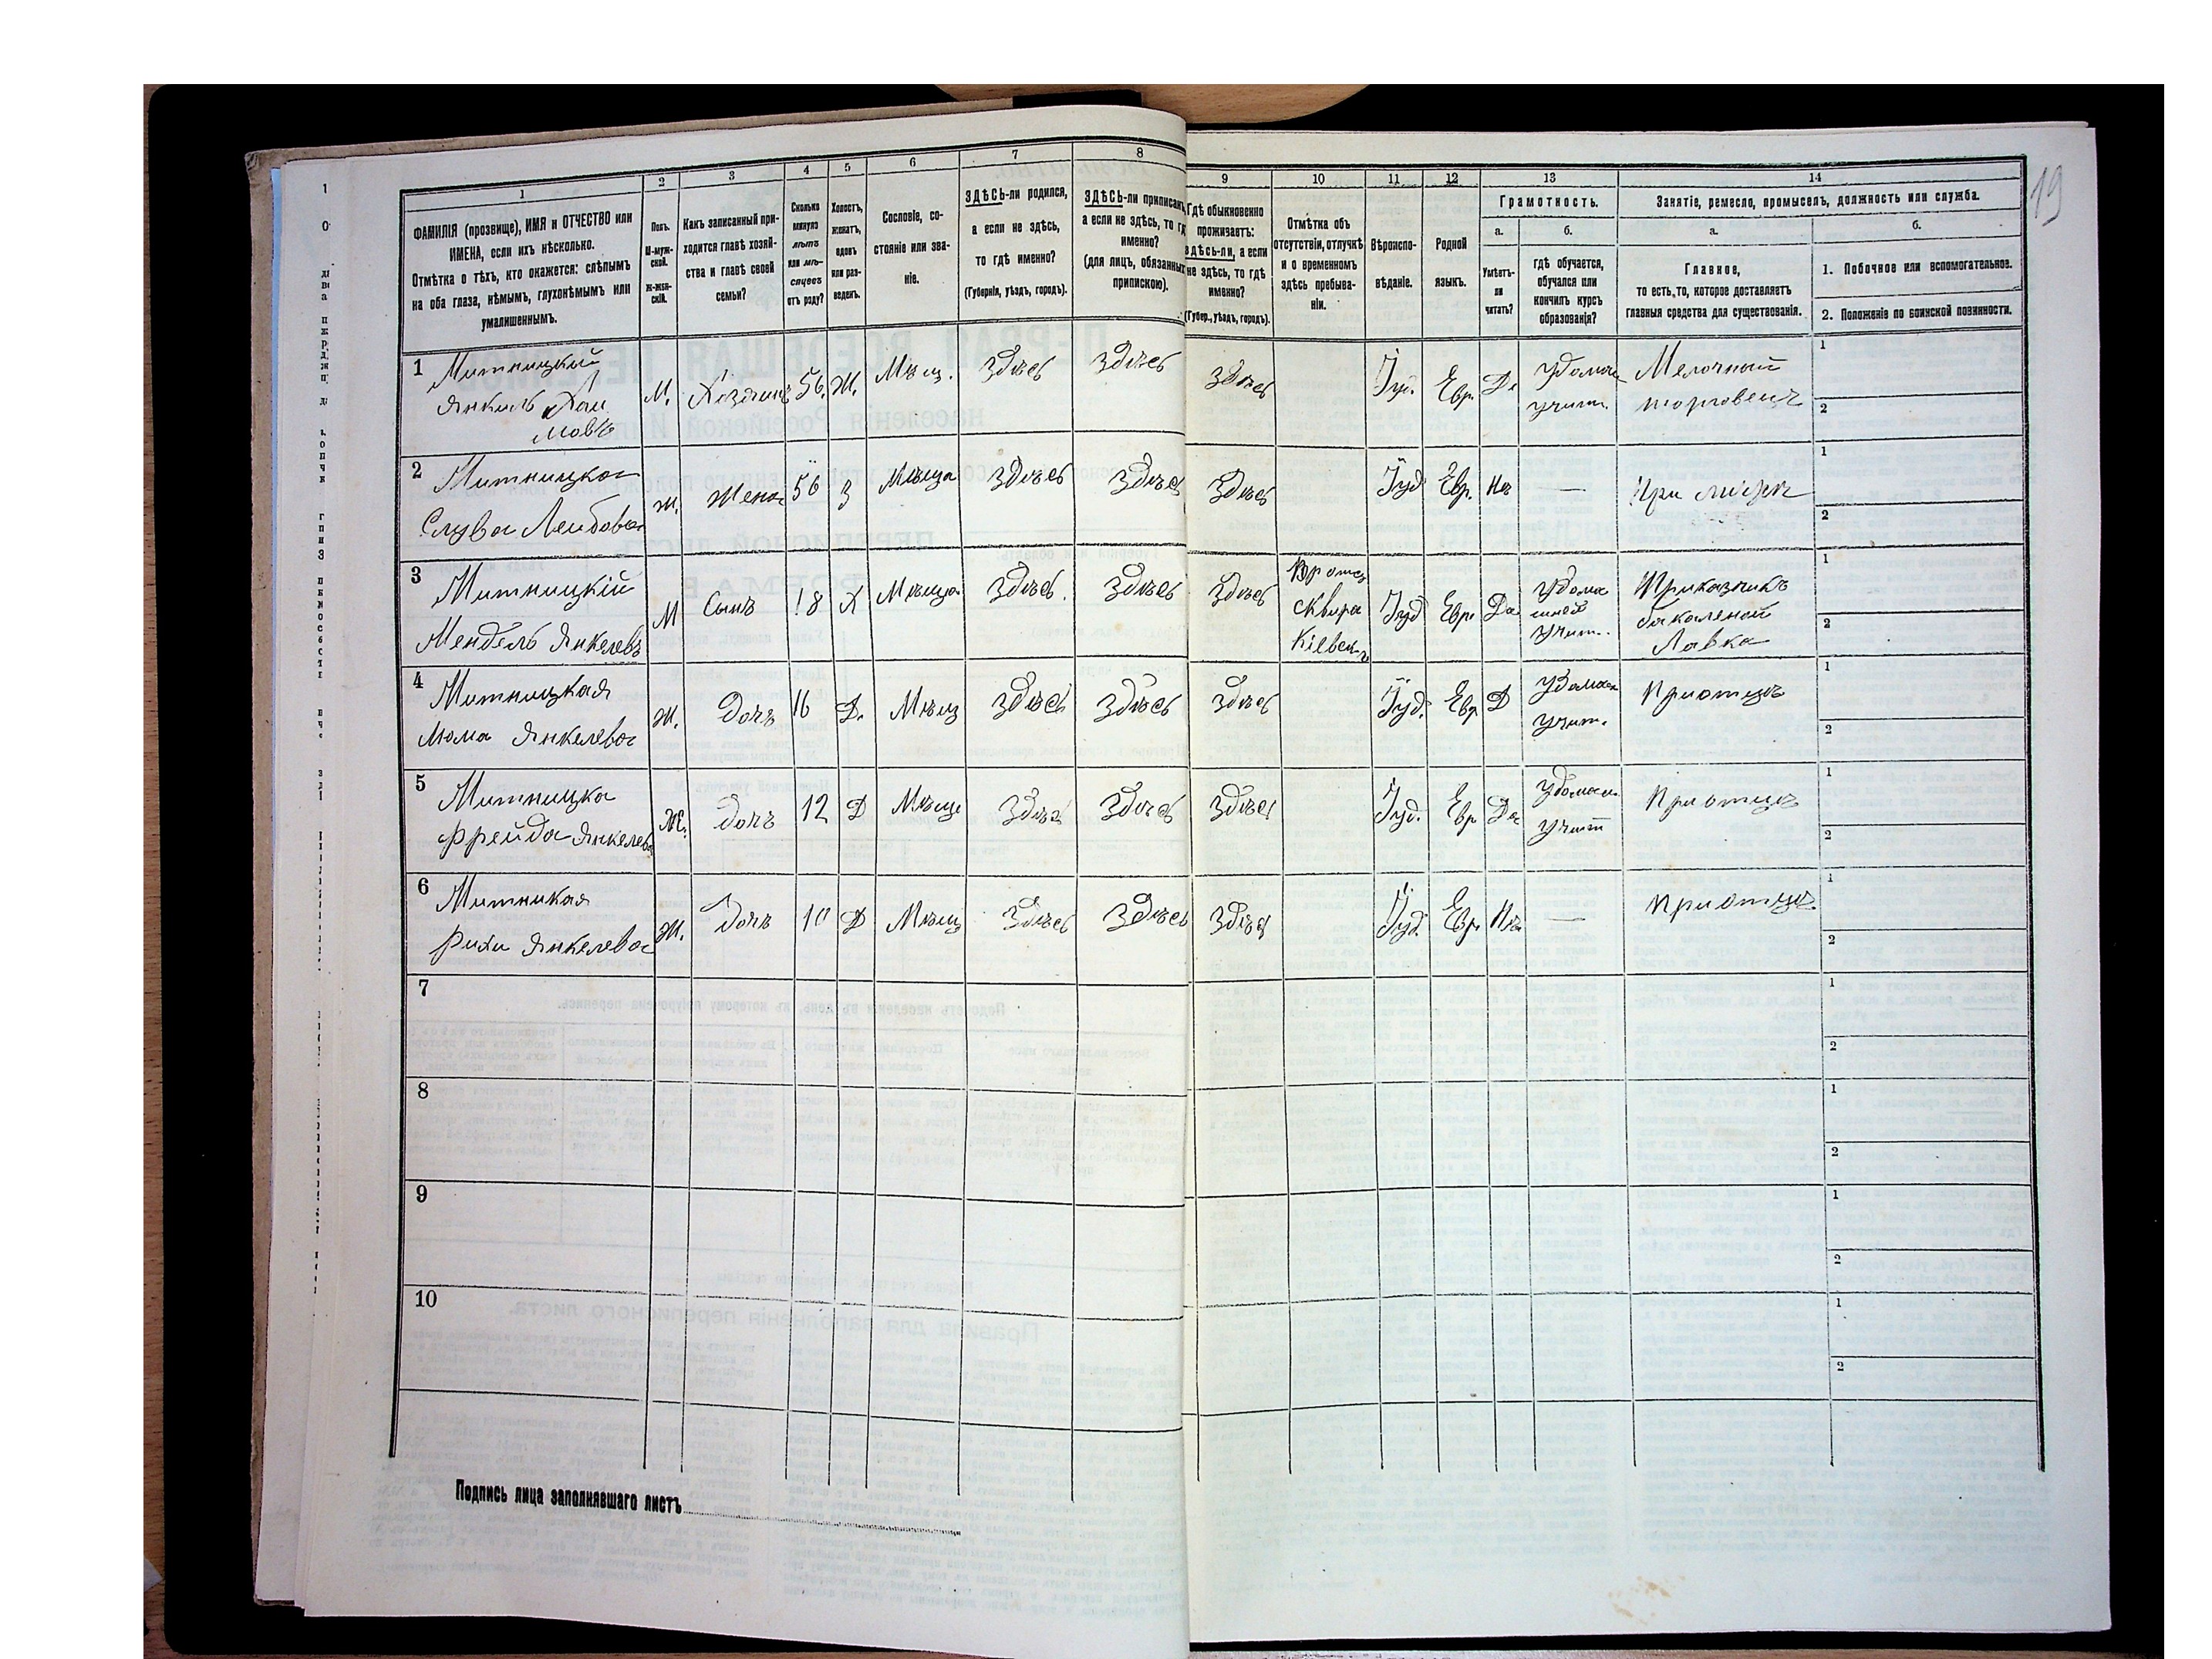 19
1
2
3
4
5
6
7
8
9
10
11
12
13
14
ФАМИЛІЯ (прозвище), ИМЯ и ОТЧЕСТВО или
ИМЕНА, если ихъ нѣсколько.
Отмѣтка о тѣхъ, кто окажется: слѣпымъ
на оба глаза, нѣмымъ, глухонѣмымъ или
умалишеннымъ.
Полъ.
М-муж-
ской.
Ж-жен-
скій.
Какъ записанный при-
ходится главѣ хозяй-
ства и главѣ своей
семьи?
Сколько
минуло
лѣтъ
или мѣ-
сяцевъ
отъ роду?
Холостъ,
женатъ,
вдовъ
или раз-
веденъ.
Сословіе, со-
стояніе или зва-
ніе.
ЗДѢСЬ-ли родился,
а если не здѣсь,
то гдѣ именно?
(Губернія, уѣздъ, городъ).
ЗДѢСЬ-ли приписанъ,
а если не здѣсь, то гдѣ
именно?
(для лицъ, обязанныхъ
припискою).
Гдѣ обыкновенно
проживаетъ:
здѣсь-ли, а если
не здѣсь, то гдѣ
именно?
(Губер., уѣздъ, городъ).
Отмѣтка объ
отсутствіи, отлучкѣ
и о временномъ
здѣсь пребыва-
ніи.
Вѣроиспо-
вѣданіе.
Родной
языкъ.
Грамотность.
а.
Умѣетъ-
ли
читать?
б.
гдѣ обучается,
обучался или
кончилъ курсъ
образованія?
Занятіе, ремесло, промыселъ, должность или служба.
а.
Главное,
то есть, то, которое доставляетъ
главныя средства для существованія.
б.
1. Побочное или вспомогательное.
2. Положеніе по воинской повинности.
1
Митницкій
Янкель Хаи
мовъ
М.
Хозяинъ
56.
Ж.
Мѣщ.
Здѣсь
Здѣсь
Здѣсь
Іуд.
Евр.
Да
У домаш
учит.
Мелочный
торговецъ
1
2
2
Митницкая
Слува Лейбова
Ж.
Жена
56
З
Мѣща
Здѣсь
Здѣсь
Здѣсь
Іуд
Евр.
Нѣ
—
При мужѣ
1
2
3
Митницкій
Мендель Янкелевъ
М
Сынъ
18
Х
Мѣща
Здѣсь.
Здѣсь
Здѣсь
Сквира
Кіевск.г
Іуд
Евр.
Да
У дома
шней
учит.
Приказчикъ
бакаленой
Лавка
1
2
4
Митницкая
Мома Янкелева
Ж.
Дочъ
16
Д.
Мѣщ
Здѣсь
Здѣсь
Здѣсь
Іуд.
Евр
Д
У домаш
учит.
При отцѣ
1
2
5
Митницка
Фрейда Янкелева
Ж.
Дочъ
12
Д
Мѣще
Здѣсь
Здѣсь
Здѣсь
Іуд.
Евр
Да
У домаш.
учит
При отцѣ
1
2
6
Митникая
Рихи Янкелева
Ж.
Дочь
10
Д
Мѣщ
Здѣсь
Здѣсь
Здѣсь
Іуд.
Евр.
Нѣ
—
При отцѣ
1
2
7
1
2
8
1
2
9
1
2
10
1
2
Подпись лица заполнявшаго листъ